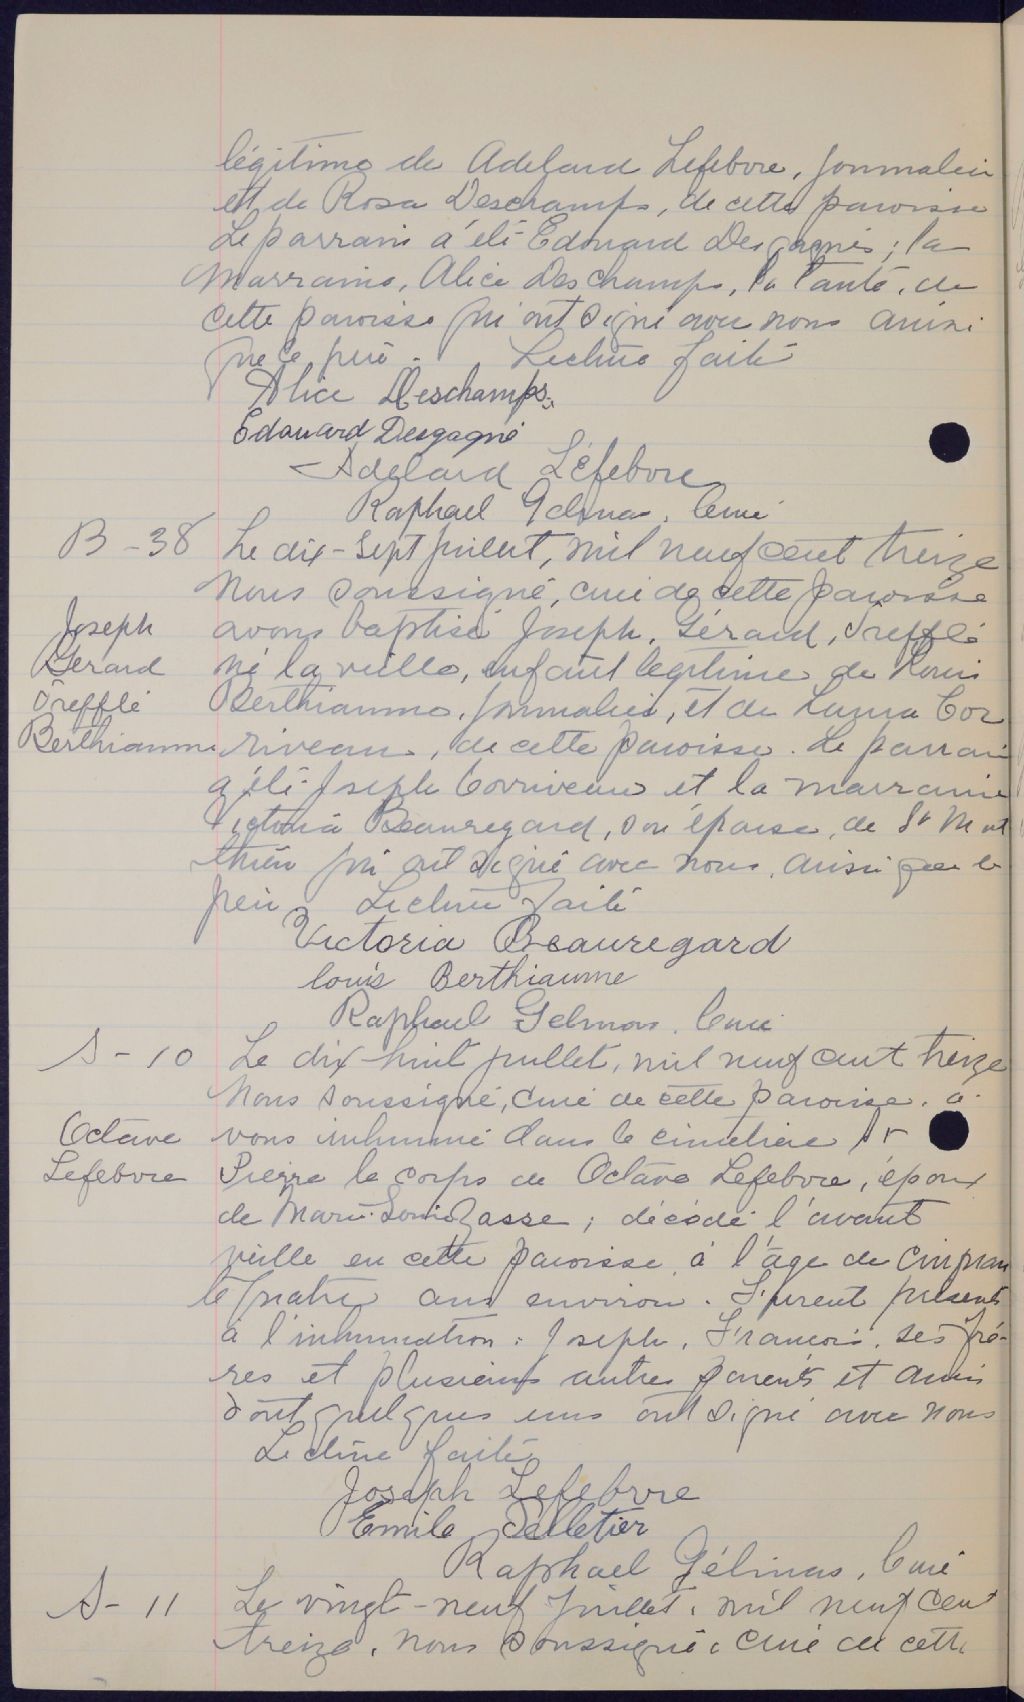 légitime de Adelard Lefebvre, journalier
et de Rosa Deschamps, de cette paroisse
Le parrain a été Edouard Desgagnés ; la
Marraine, Alice Deschamps, la tante, de
cette paroisse qui ont signé avec nous ainsi
que le père. Lecture faite
Alice Deschamps
Edouard Desgagné
Adelard Lefebvre
Raphael Gelinas, Curé
B - 38 Le dix-sept juillet, mil neuf cent treize
Nous soussigné, curé de cette paroisse
Joseph avons baptisé Joseph, Gérard, Trefflé
Gérard né la veille, enfant légitime de Louis
Trefflé Berthiaume, journalier, et de Cor
Berthiaume riveau, de cette paroisse. Le parrain
a été Joseph Corriveau et la marraine
Victoria Beauregard, son épouse, de St Mat
thieu qui ont signé avec nous, ainsi que le
père. Lecture faite
Victoria Beauregard
louis Berthiaume
Raphael Gelinas, Curé
S - 10 Le dix huit juillet, mil neuf cent treize
Nous soussigné, curé de cette paroisse, a
Octave vons inhumé dans le cimetière St
Lefebvre Pierre le corps de Octave Lefebvre, époux
de Marie-Louise ; décédé l'avant
veille en cette paroisse à l'âge de cinquan
te quatre ans environ. Furent présents
à l'inhumation : Joseph, François, ses frè-
res et plusieurs autres parents et amis
dont quelques uns ont signé avec nous
Lecture faite
Joseph Lefebvre
Emile Pelletier
Raphael Gélinas, Curé
S - 11 Le vingt-neuf juillet, mil neuf cent
treize, nous soussigné, curé de cette